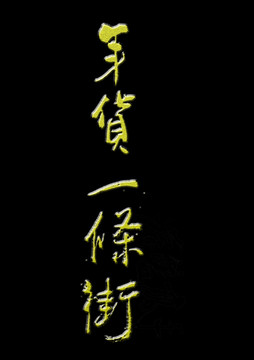 年貨一條街